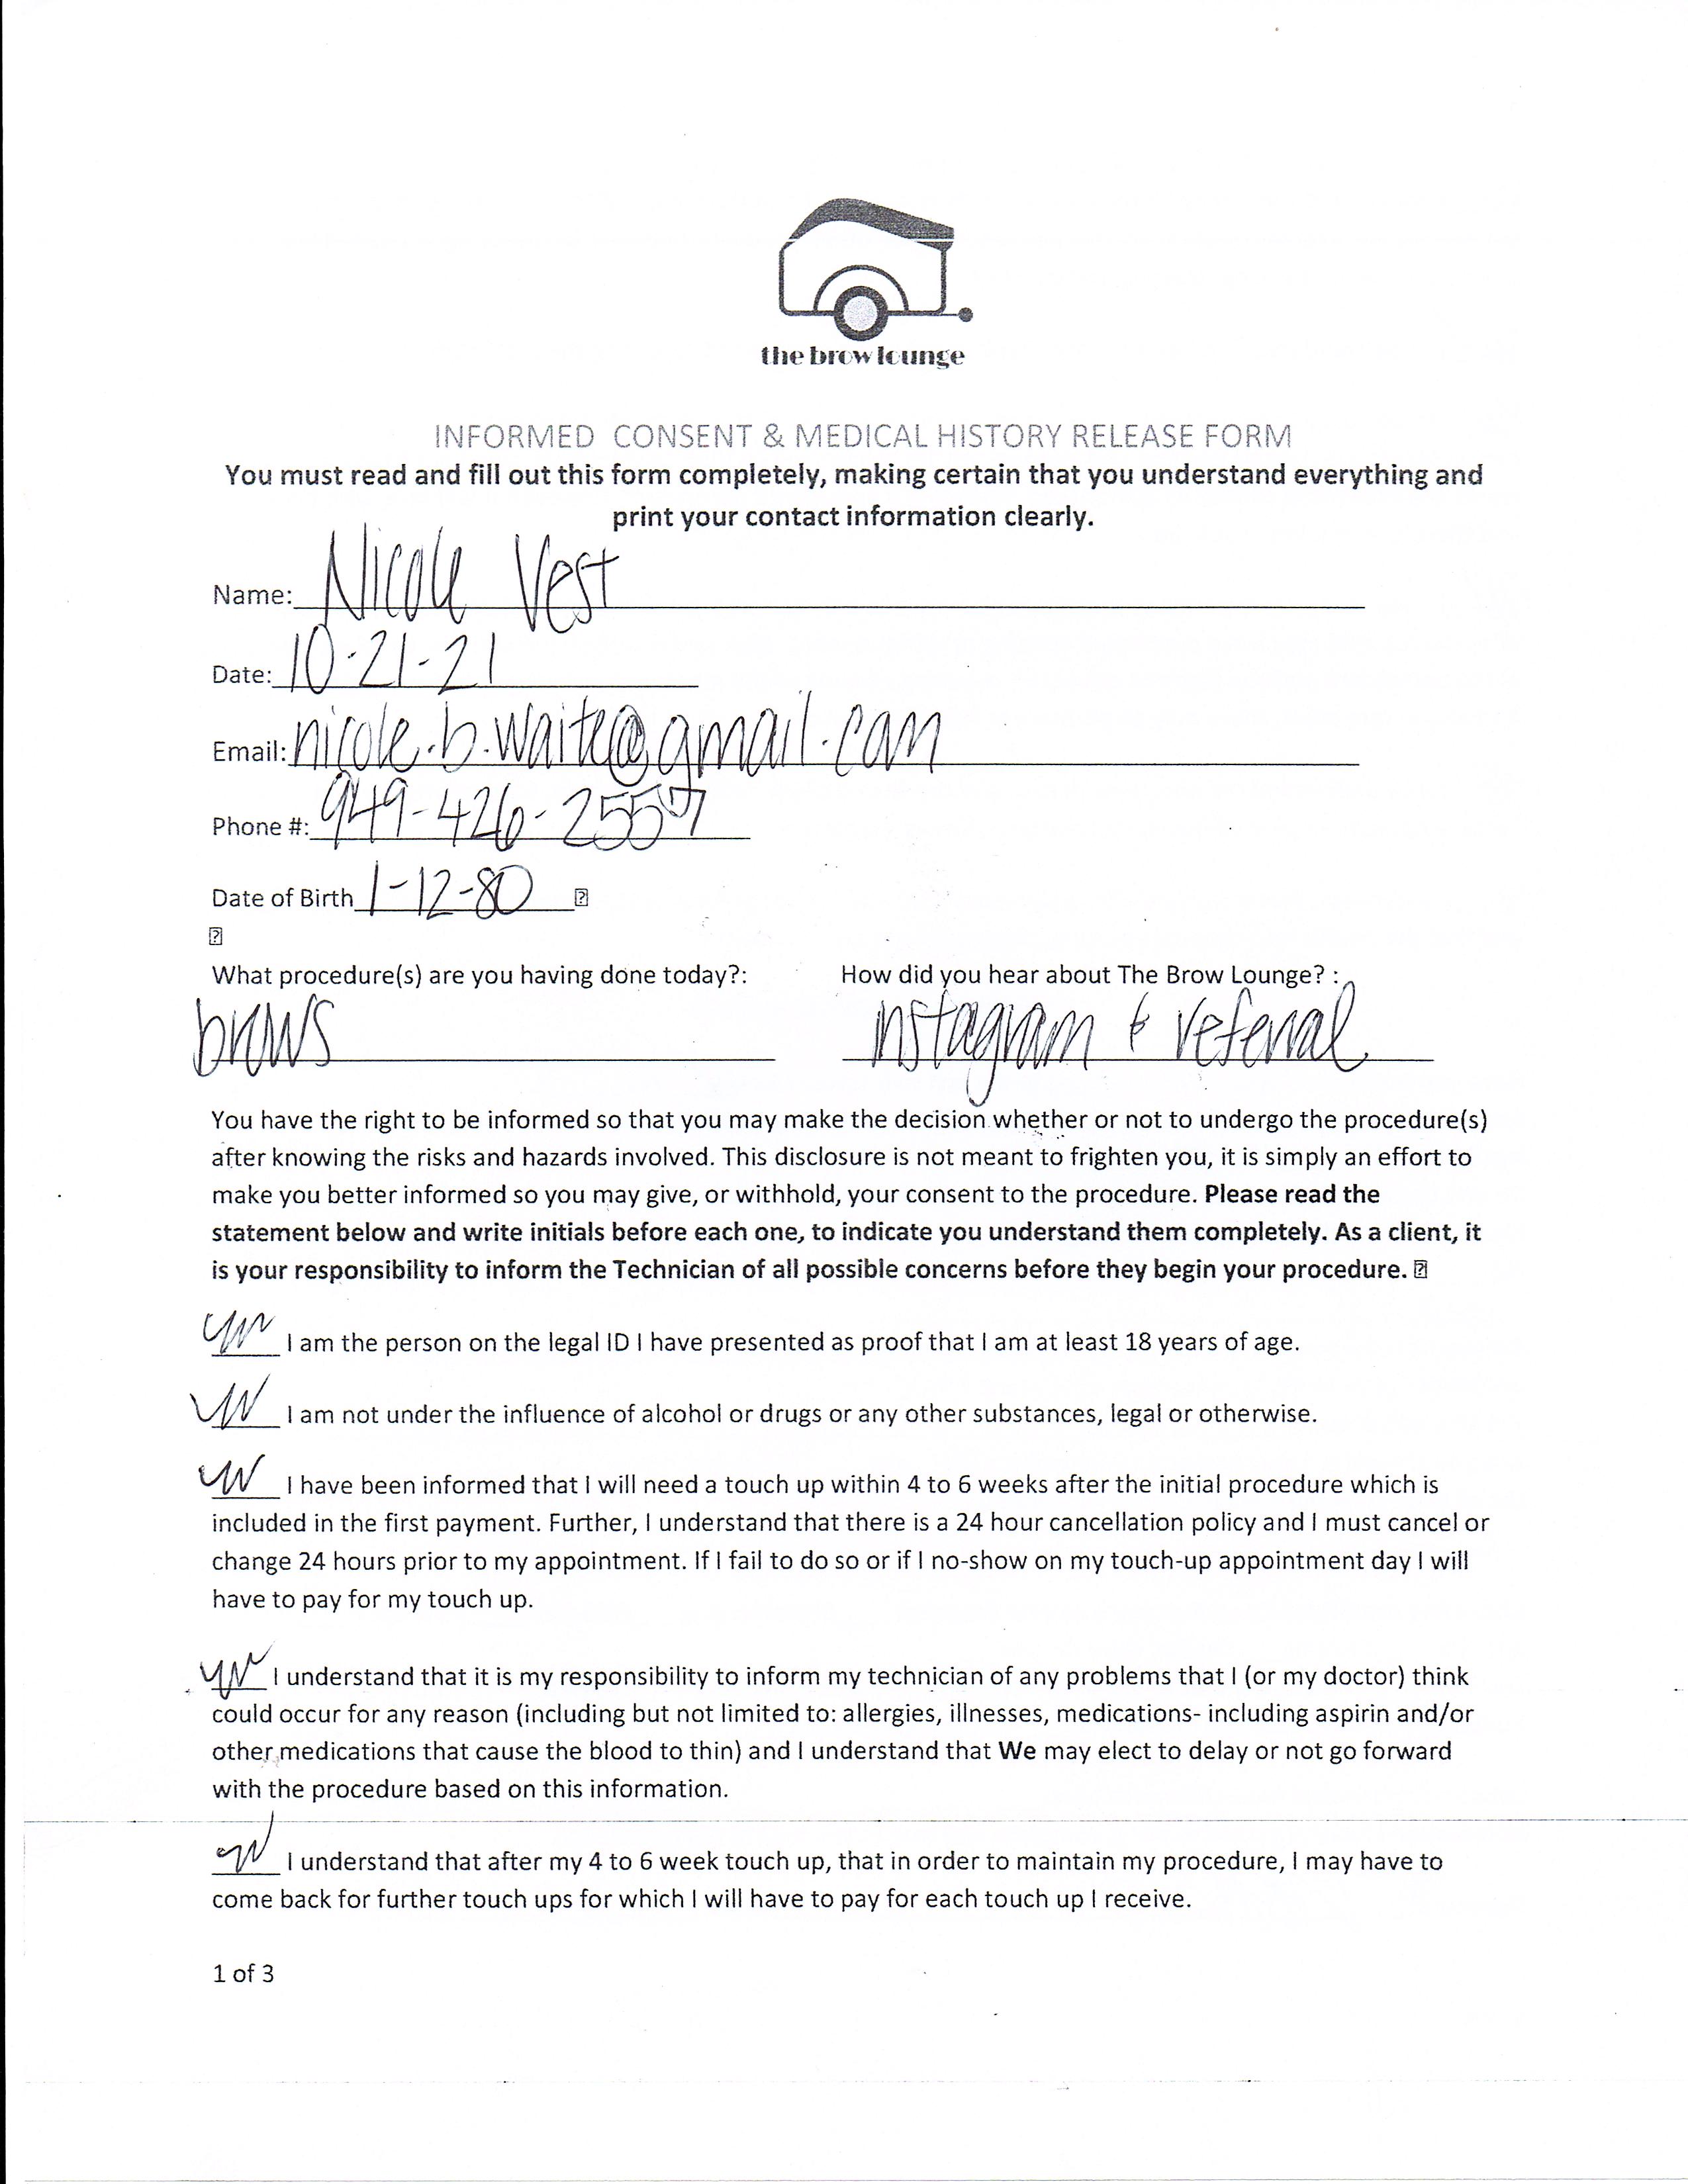 the brow lounge
INFORMED CONSENT & MEDICAL HISTORY RELEASE FORM
You must read and fill out this form completely, making certain that you understand everything and
print your contact information clearly.
Name: Nicole Vest
Date: 10-21-21
Email: nicole.b.waite@gmail.com
Phone #: 949-426-2557
Date of Birth 1-12-80
What procedure(s) are you having done today?: How did you hear about The Brow Lounge? :
brows instagram & referral
You have the right to be informed so that you may make the decision whether or not to undergo the procedure(s)
after knowing the risks and hazards involved. This disclosure is not meant to frighten you, it is simply an effort to
make you better informed so you may give, or withhold, your consent to the procedure. Please read the
statement below and write initials before each one, to indicate you understand them completely. As a client, it
is your responsibility to inform the Technician of all possible concerns before they begin your procedure.
I am the person on the legal ID I have presented as proof that I am at least 18 years of age.
I am not under the influence of alcohol or drugs or any other substances, legal or otherwise.
I have been informed that I will need a touch up within 4 to 6 weeks after the initial procedure which is
included in the first payment. Further, I understand that there is a 24 hour cancellation policy and I must cancel or
change 24 hours prior to my appointment. If I fail to do so or if I no-show on my touch-up appointment day I will
have to pay for my touch up.
I understand that it is my responsibility to inform my technician of any problems that I (or my doctor) think
could occur for any reason (including but not limited to: allergies, illnesses, medications- including aspirin and/or
other medications that cause the blood to thin) and I understand that We may elect to delay or not go forward
with the procedure based on this information.
I understand that after my 4 to 6 week touch up, that in order to maintain my procedure, I may have to
come back for further touch ups for which I will have to pay for each touch up I receive.
1 of 3